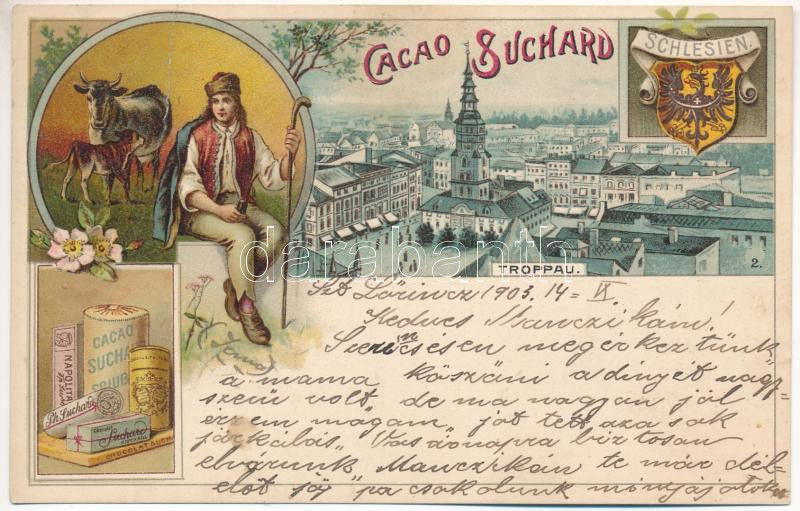 CACAO SUCHARD
SCHLESIEN.
TROPPAU.
2.
darabanth
CACAO
SUCHA
NAPOLITA
Ph. Suchard
Suchard
CHOCOLAT SUCH
Szt Lőrincz 1903. 14 - IX
Kedves Manczikám!
Szerencsésen megérkeztünk
a mama köszöni a dinyét nagy-
szerü volt, de ma nagyon jól
érzem magam, jót tett az a sok
járkálás. Vasárnapra biztosan
elvárunk Manczikám te már dél-
előt jöj pa csokolunk